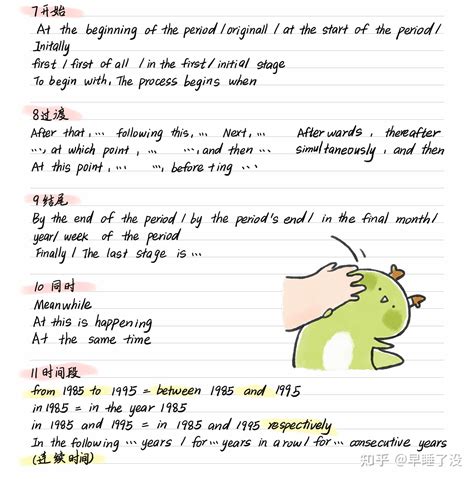 7开始
At the beginning of the period / originall / at the start of the period /
Initally
first / first of all / in the first / initial stage
To begin with, The process begins when
8过渡
After that, ... following this, ... Next, ... Afterwards, thereafter
..., at which point, ... ..., and then ... simultaneously, and then
At this point, ... ..., before + ing ...
9结尾
By the end of the period / by the period's end / in the final month /
year / week of the period
Finally / The last stage is ...
10 同时
Meanwhile
At this is happening
At the same time
11时间段
from 1985 to 1995 = between 1985 and 1995
in 1985 = in the year 1985
in 1985 and 1995 = in 1985 and 1995 respectively
In the following ... years / for ... years in a row / for ... consecutive years
(连续时间)
知乎 @早睡了没